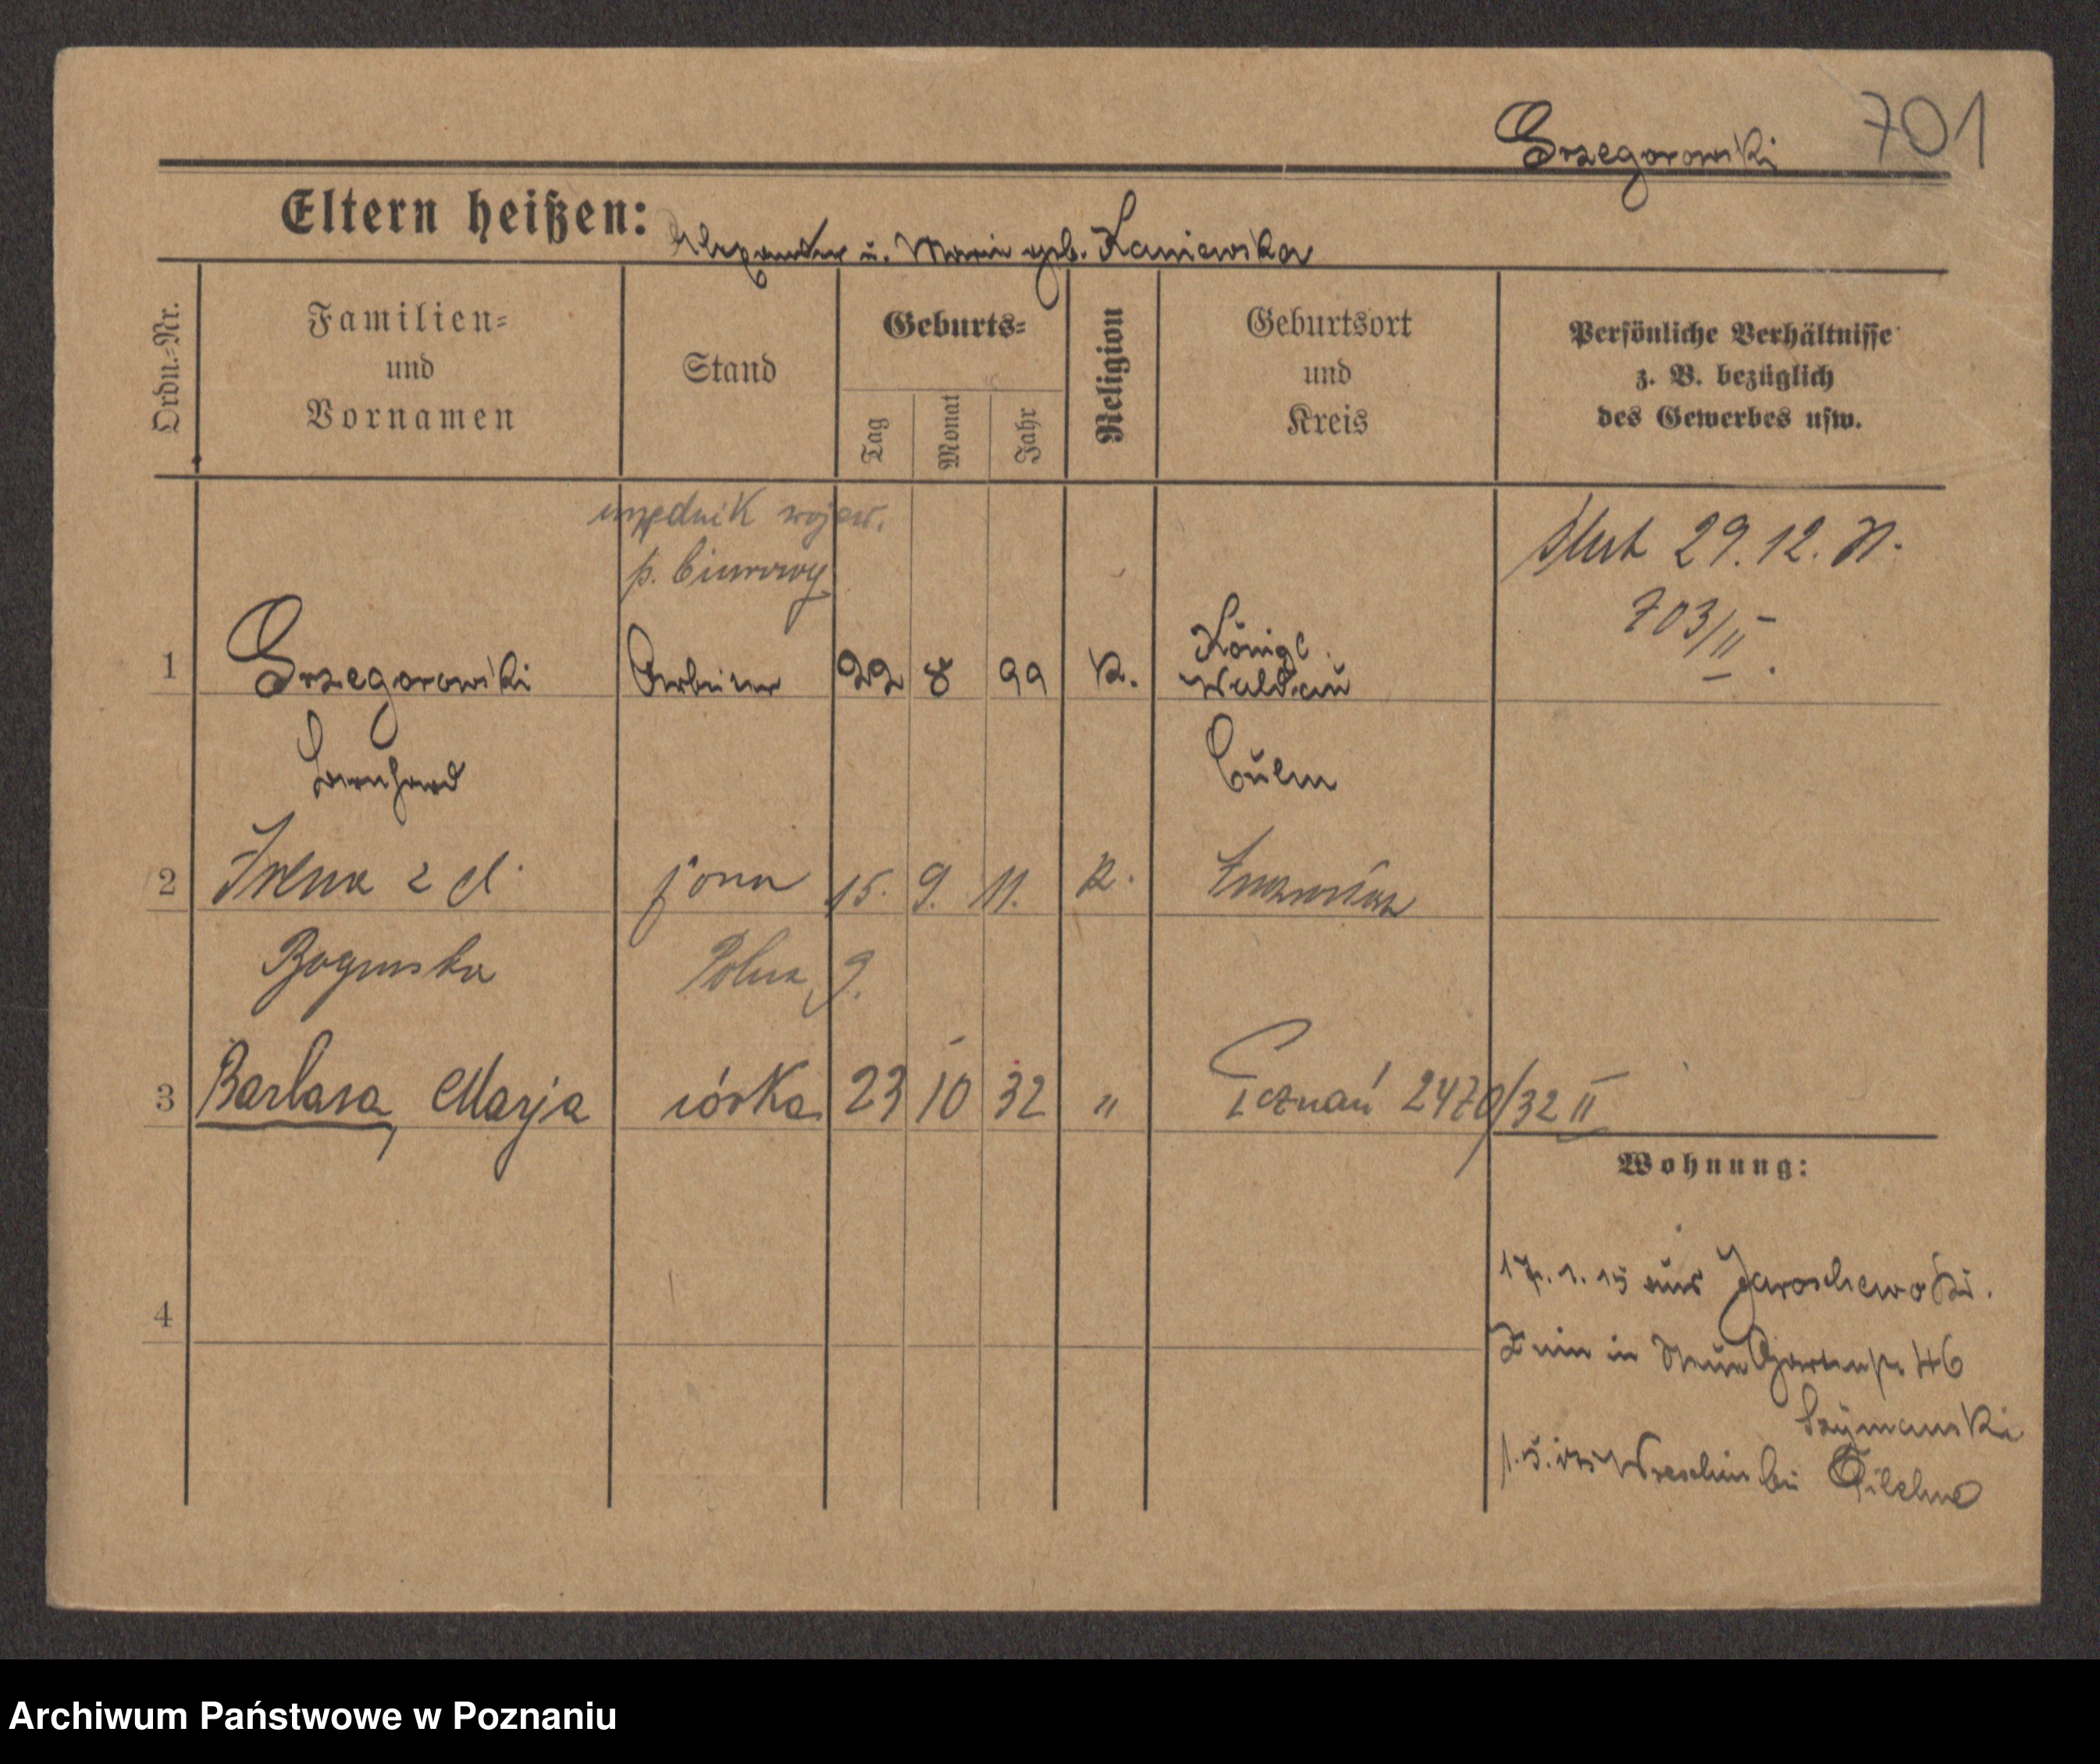 701
Grzegorowski
Eltern heißen: Alexander u. Marie geb. Kaniewska
Ordn.-Nr.
Familien- und Vornamen
Stand
Geburts-
Tag
Monat
Jahr
Religion
Geburtsort und Kreis
Persönliche Verhältnisse z. B. bezüglich des Gewerbes usw.
urzędnik wojew.
p. biurowy
ślub 29.12.31.
703/II.
1 Grzegorowski Arbeiter 22 8 99 K. Königl. Waldau
Bernhard Culm
2 Irena z d. żona 15. 9. 11. K.
Bogunska Polna 9.
3 Barbara, Marja córka 23 10 32 " Poznań 2470/32 II
Wohnung:
4
17.1.15 aus Jaroschewo Kr.
Znin in Neue Gartenstr. 46
Szymanski
1.5. Wreschin bei Filehne
Archiwum Państwowe w Poznaniu